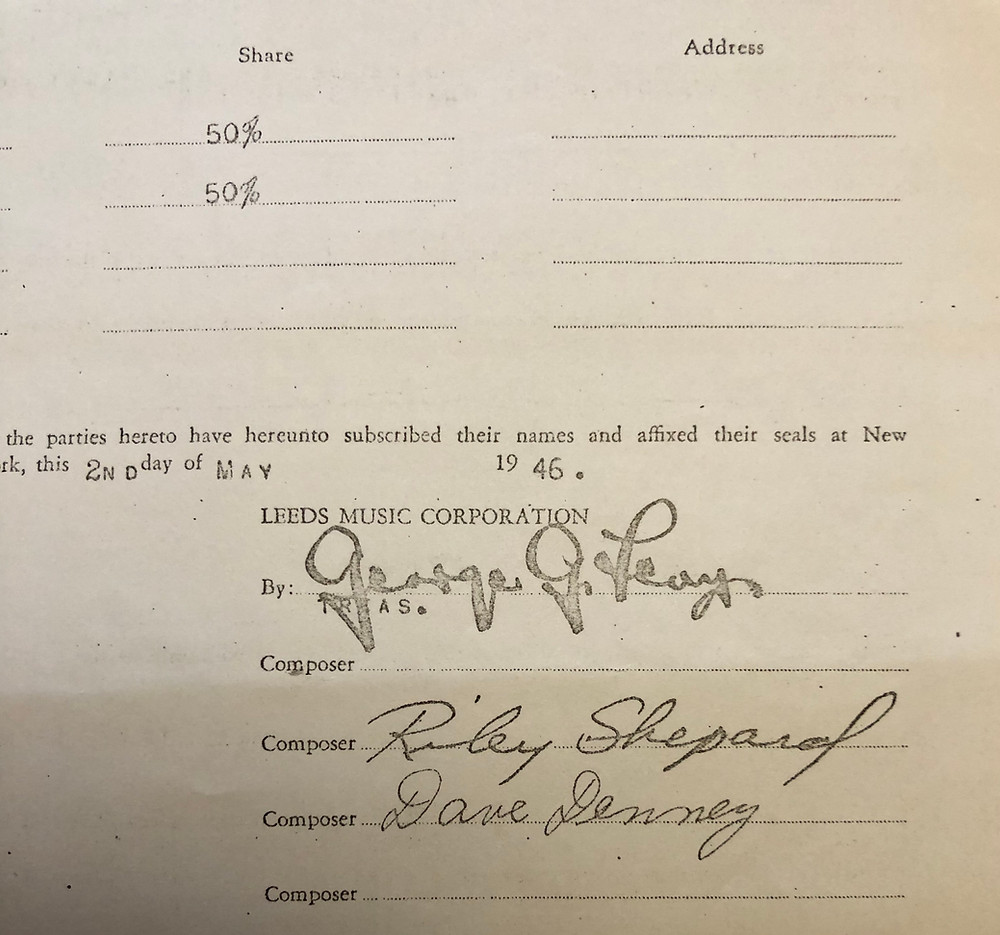 Share Address
50%
50%
the parties hereto have hereunto subscribed their names and affixed their seals at New
rk, this 2ND day of MAY 1946.
LEEDS MUSIC CORPORATION
By: George G. Levy
TREAS.
Composer
Composer Riley Shepard
Composer Dave Denney
Composer